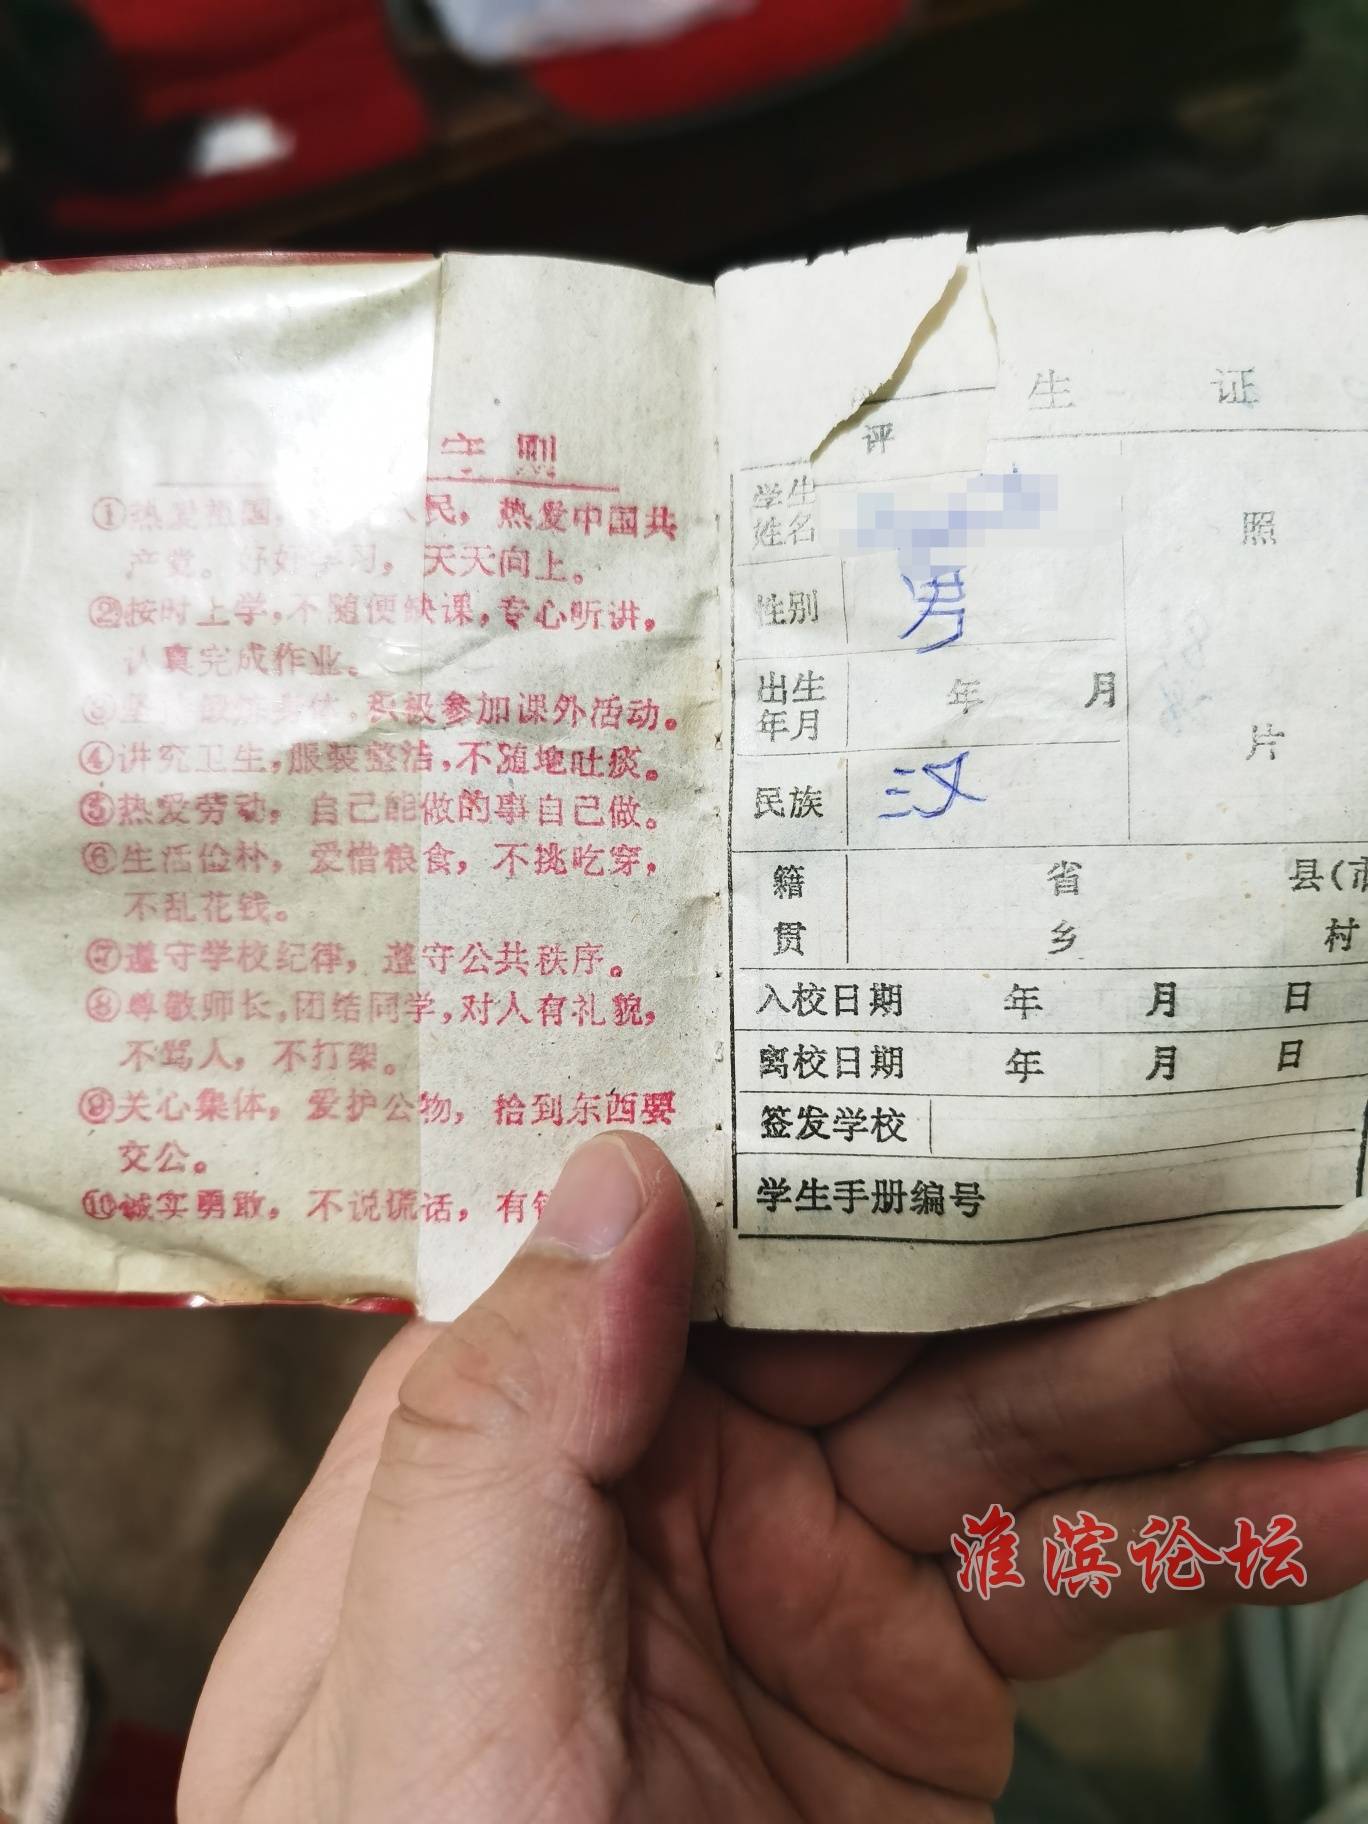 守则
①热爱祖国，人民，热爱中国共
产党。好好学习，天天向上。
②按时上学，不随便缺课，专心听讲，
认真完成作业。
③坚身体，积极参加课外活动。
④讲究卫生，服装整洁，不随地吐痰。
⑤热爱劳动，自己能做的事自己做。
⑥生活俭朴，爱惜粮食，不挑吃穿，
不乱花钱。
⑦遵守学校纪律，遵守公共秩序。
⑧尊敬师长，团结同学，对人有礼貌，
不骂人，不打架。
⑨关心集体，爱护公物，拾到东西要
交公。
⑩诚实勇敢，不说谎话，有
生 证
评
学生姓名
性别 男
出生年月 年 月
民族 汉
照片
籍贯 省 县(市
乡 村
入校日期 年 月 日
离校日期 年 月 日
签发学校
学生手册编号
淮滨论坛